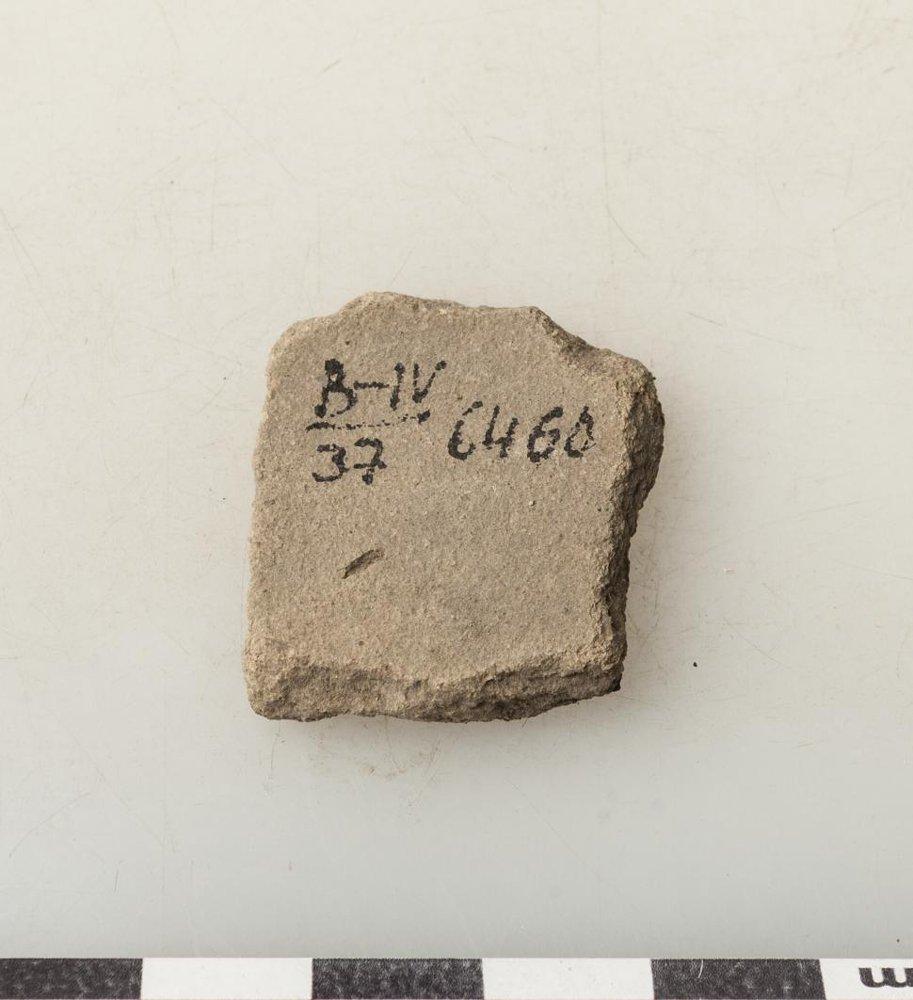 B-IV
37 6460